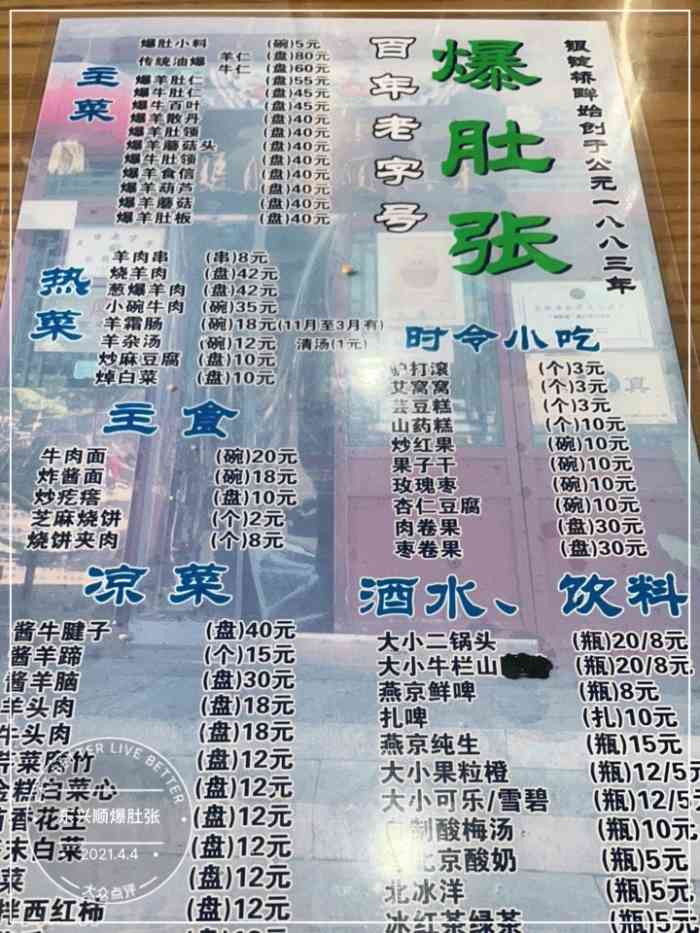 银锭桥畔始创于公元一八八三年
爆肚张
百年老字号
主菜
爆肚小料 (碗)5元
传统油爆 羊仁 (盘)80元
牛仁 (盘)60元
爆羊肚仁 (盘)55元
爆牛肚仁 (盘)45元
爆牛百叶 (盘)45元
爆羊散丹 (盘)40元
爆羊肚领 (盘)40元
爆羊蘑菇头 (盘)40元
爆牛肚领 (盘)40元
爆羊食信 (盘)40元
爆羊葫芦 (盘)40元
爆羊蘑菇 (盘)40元
爆羊肚板 (盘)40元
热菜
羊肉串 (串)8元
烧羊肉 (盘)42元
葱爆羊肉 (盘)42元
小碗牛肉 (碗)35元
羊霜肠 (碗)18元(11月至3月有)
羊杂汤 (碗)12元 清汤(1元)
炒麻豆腐 (盘)10元
焯白菜 (盘)10元
主食
牛肉面 (碗)20元
炸酱面 (碗)18元
炒疙瘩 (盘)10元
芝麻烧饼 (个)2元
烧饼夹肉 (个)8元
时令小吃
驴打滚 (个)3元
艾窝窝 (个)3元
芸豆糕 (个)3元
山药糕 (个)10元
炒红果 (碗)10元
果子干 (碗)10元
玫瑰枣 (碗)10元
杏仁豆腐 (碗)10元
肉卷果 (盘)30元
枣卷果 (盘)30元
凉菜
酱牛腱子 (盘)40元
酱羊蹄 (个)15元
酱羊脑 (盘)30元
羊头肉 (盘)18元
牛头肉 (盘)18元
芹菜腐竹 (盘)12元
金糕白菜心 (盘)12元
香花生 (盘)12元
末白菜 (盘)12元
菜 (盘)12元
拌西红柿 (盘)12元
酒水、饮料
大小二锅头 (瓶)20/8元
大小牛栏山 (瓶)20/8元
燕京鲜啤 (瓶)8元
扎啤 (扎)10元
燕京纯生 (瓶)15元
大小果粒橙 (瓶)12/5元
大小可乐/雪碧 (瓶)12/5
制酸梅汤 (瓶)10元
北京酸奶 (瓶)5元
北冰洋 (瓶)5元
冰红茶绿茶 (瓶)5元
BETTER LIVE BETTER
东兴顺爆肚张
2021.4.4
大众点评